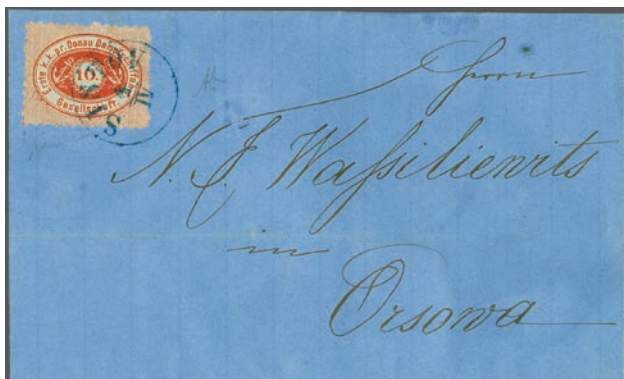 Erste k.k. pr. Donau Dampfschiffahrt
10
Gesellschaft.
Herrn
N. J. Waſsilievits
in
Orsowa